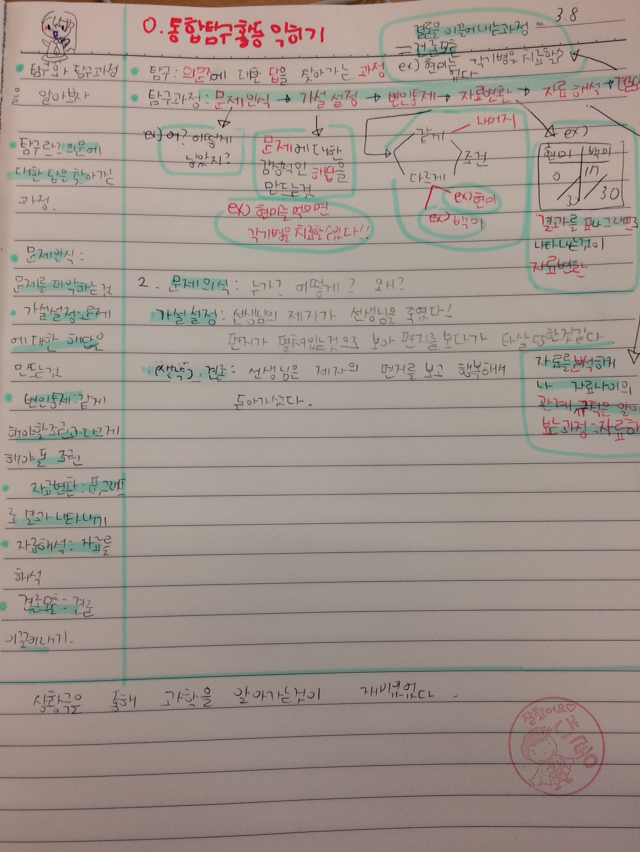 0. 통합탐구활동 익히기
3.8
결론을 이끌어내는과정
= 결론도출
ex) 현미는 각기병을 치료할수
있다
• 탐구와 탐구과정
을 알아보자
• 탐구: 의문에 대한 답을 찾아가는 과정
• 탐구과정: 문제인식 → 가설설정 → 변인통제 → 자료변환 → 자료 해석 →
ex) 어? 어떻게
낳았지?
문제에대한
잠정적인 해답을
만드는것
ex) 현미를 먹으면
각기병을 치료할수있다!!
같게
나머지
다르게
조건
ex) 현미
ex) 백미
ex)
현미 백미
0 10
30 30
결과를 표나그래프로
나타내는것이
자료변환
자료를분석하거
나 자료사이의
관계 규칙은 알아
보는과정 = 자료해
• 탐구란? 의문에
대한 답을 찾아가는
과정.
• 문제인식:
문제를 파악하는것
• 가설설정:문제
에 대한 해답을
만드는것
• 변인통제:같게
해야할조건과다르게
해야할 조건
• 자료변환:표,그래프
로 결과 나타내기
• 자료해석: 자료를
해석
• 결론도출: 결론
이끌어내기.
2. 문제의식: 누가? 어떻게? 왜?
가설설정: 선생님의 제자가 선생님을 죽였다!
편지가 펼쳐있는것으로 보아 편지를 보다가 당한것같다
(생략), 결론: 선생님은 제자의 편지를 보고 행복해서
돌아가셨다.
상황극을 통해 과학을 알아가는것이 재미있었다.
잘했어요♡